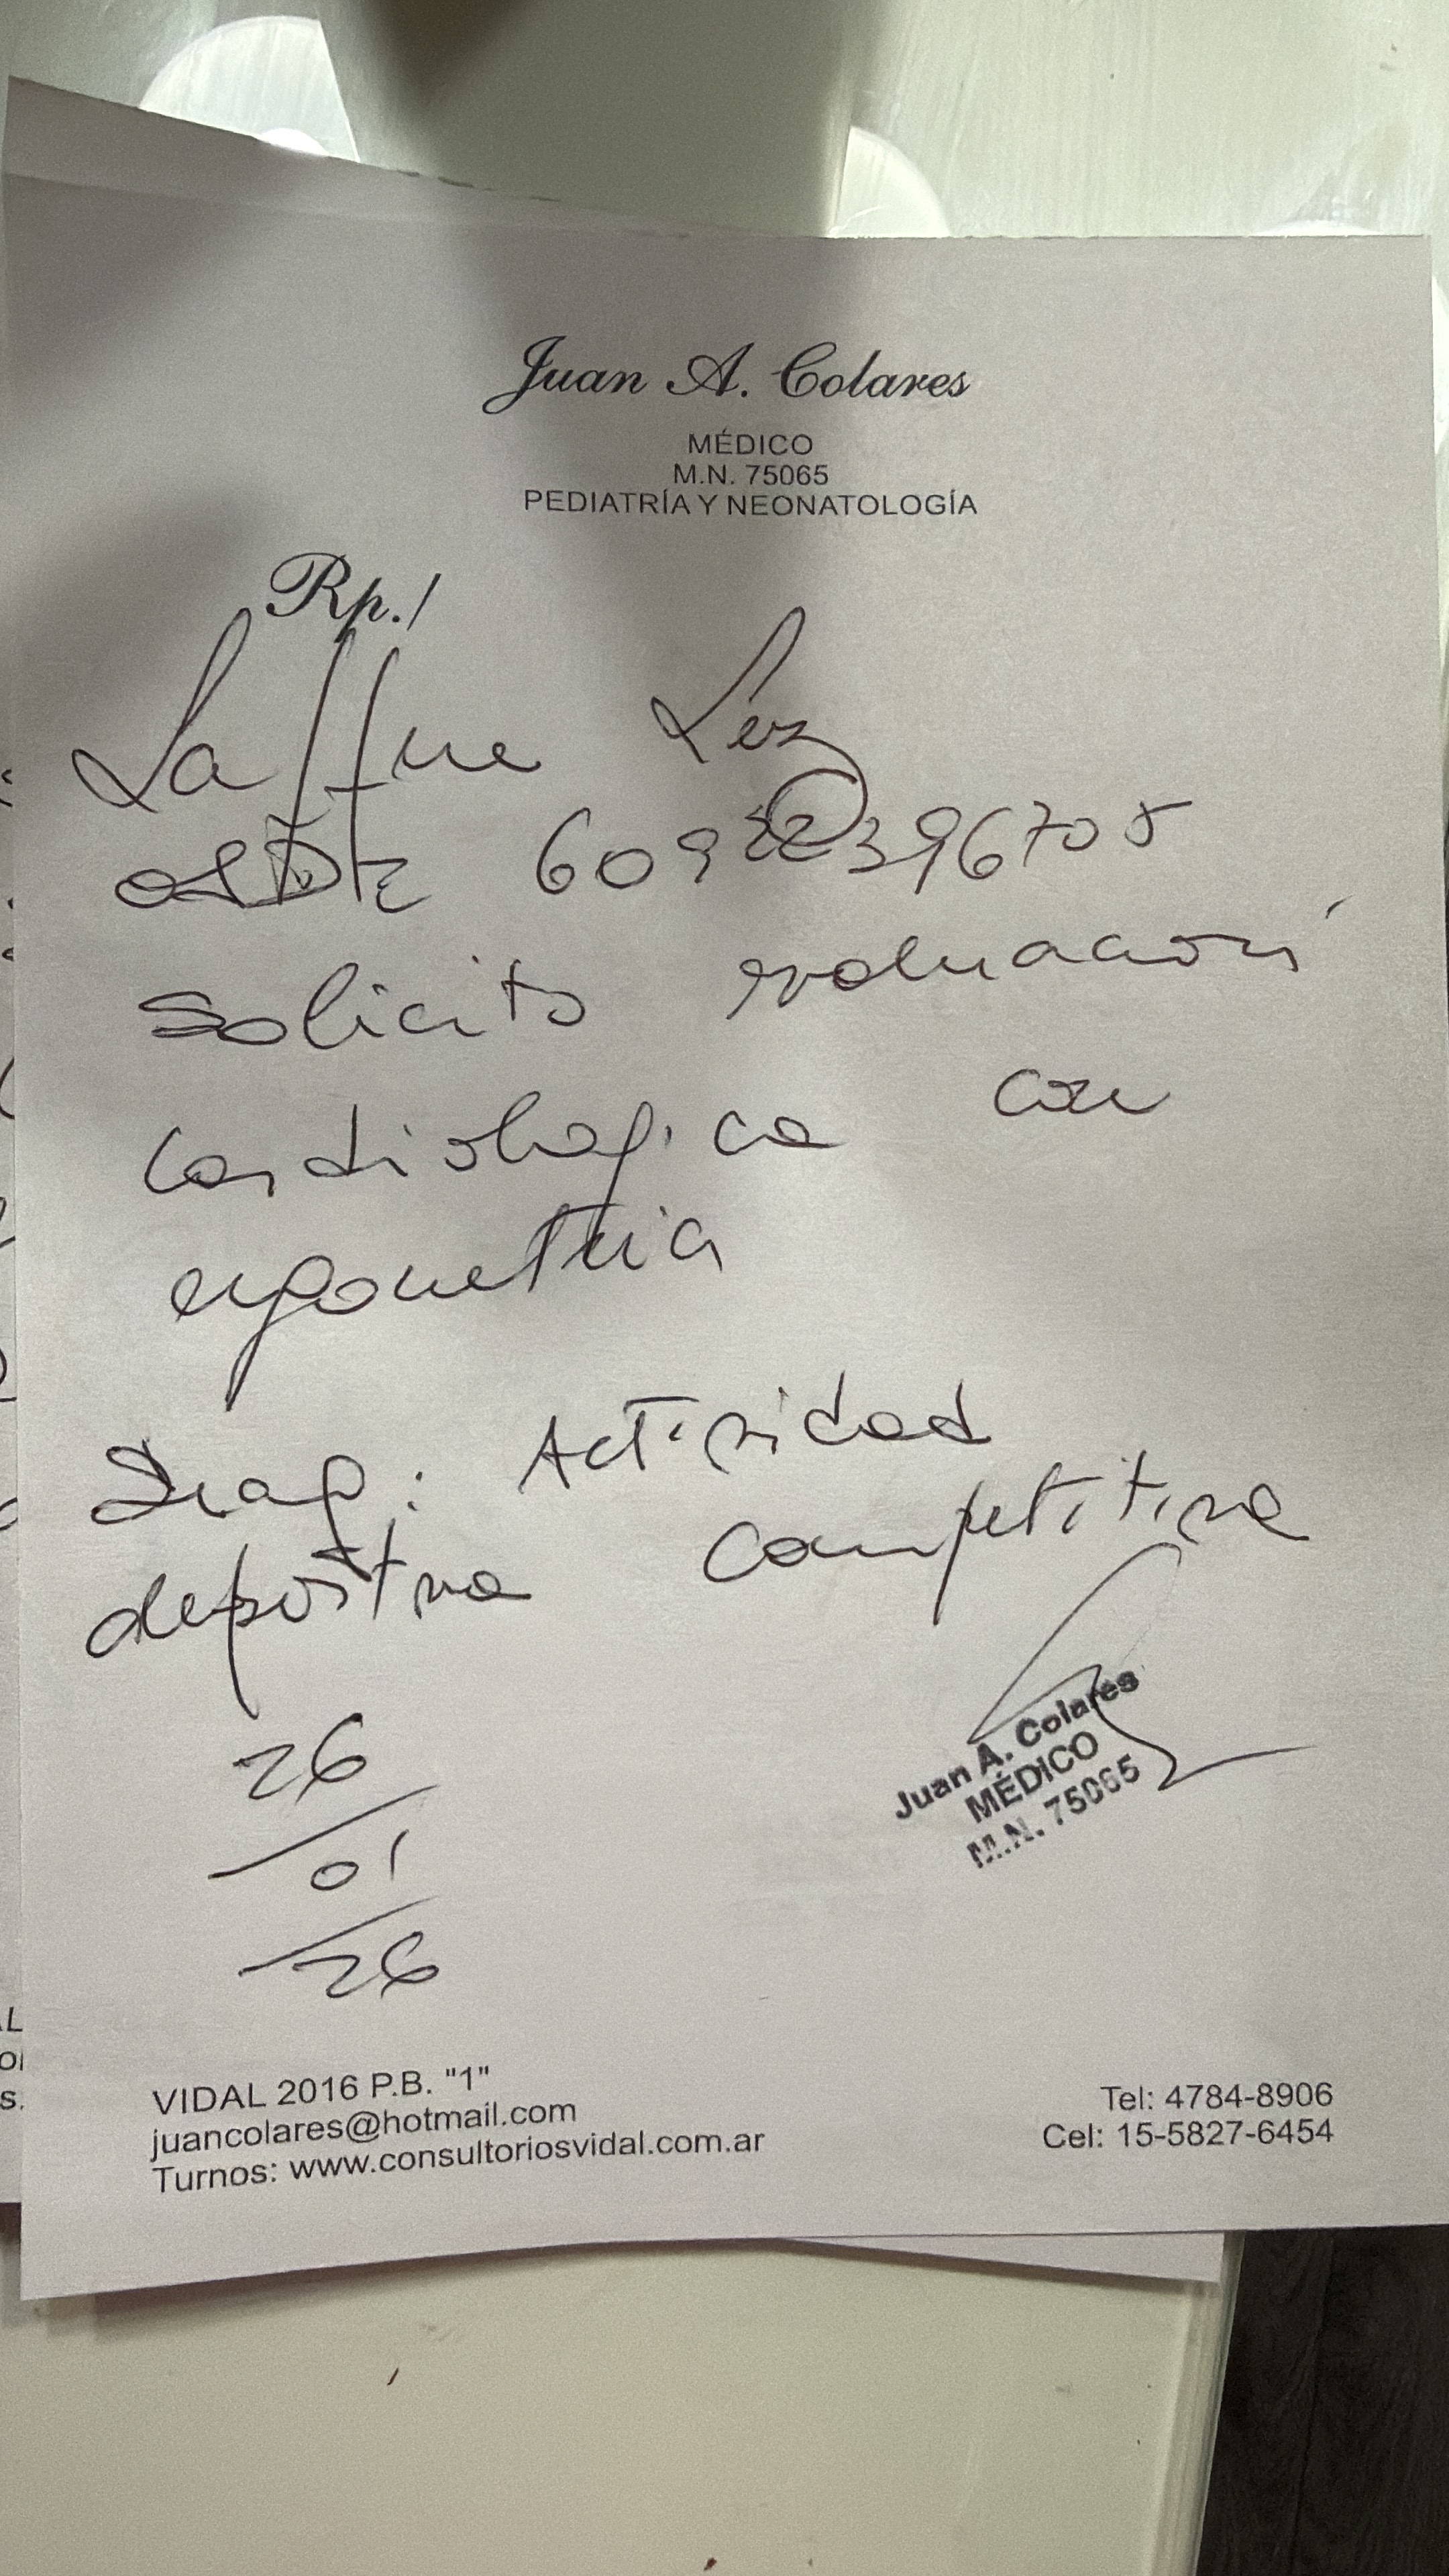 Juan A. Colares
MÉDICO
M.N. 75065
PEDIATRÍA Y NEONATOLOGÍA
Rp./
Laffue
OSDE
solicito evaluación
cardiologica con
ergometria
Diag: Actividad
deportiva competitiva
26/01/26
Juan A. Colares
MÉDICO
M.N. 75065
VIDAL 2016 P.B. "1"
juancolares@hotmail.com
Turnos: www.consultoriosvidal.com.ar
Tel: 4784-8906
Cel: 15-5827-6454